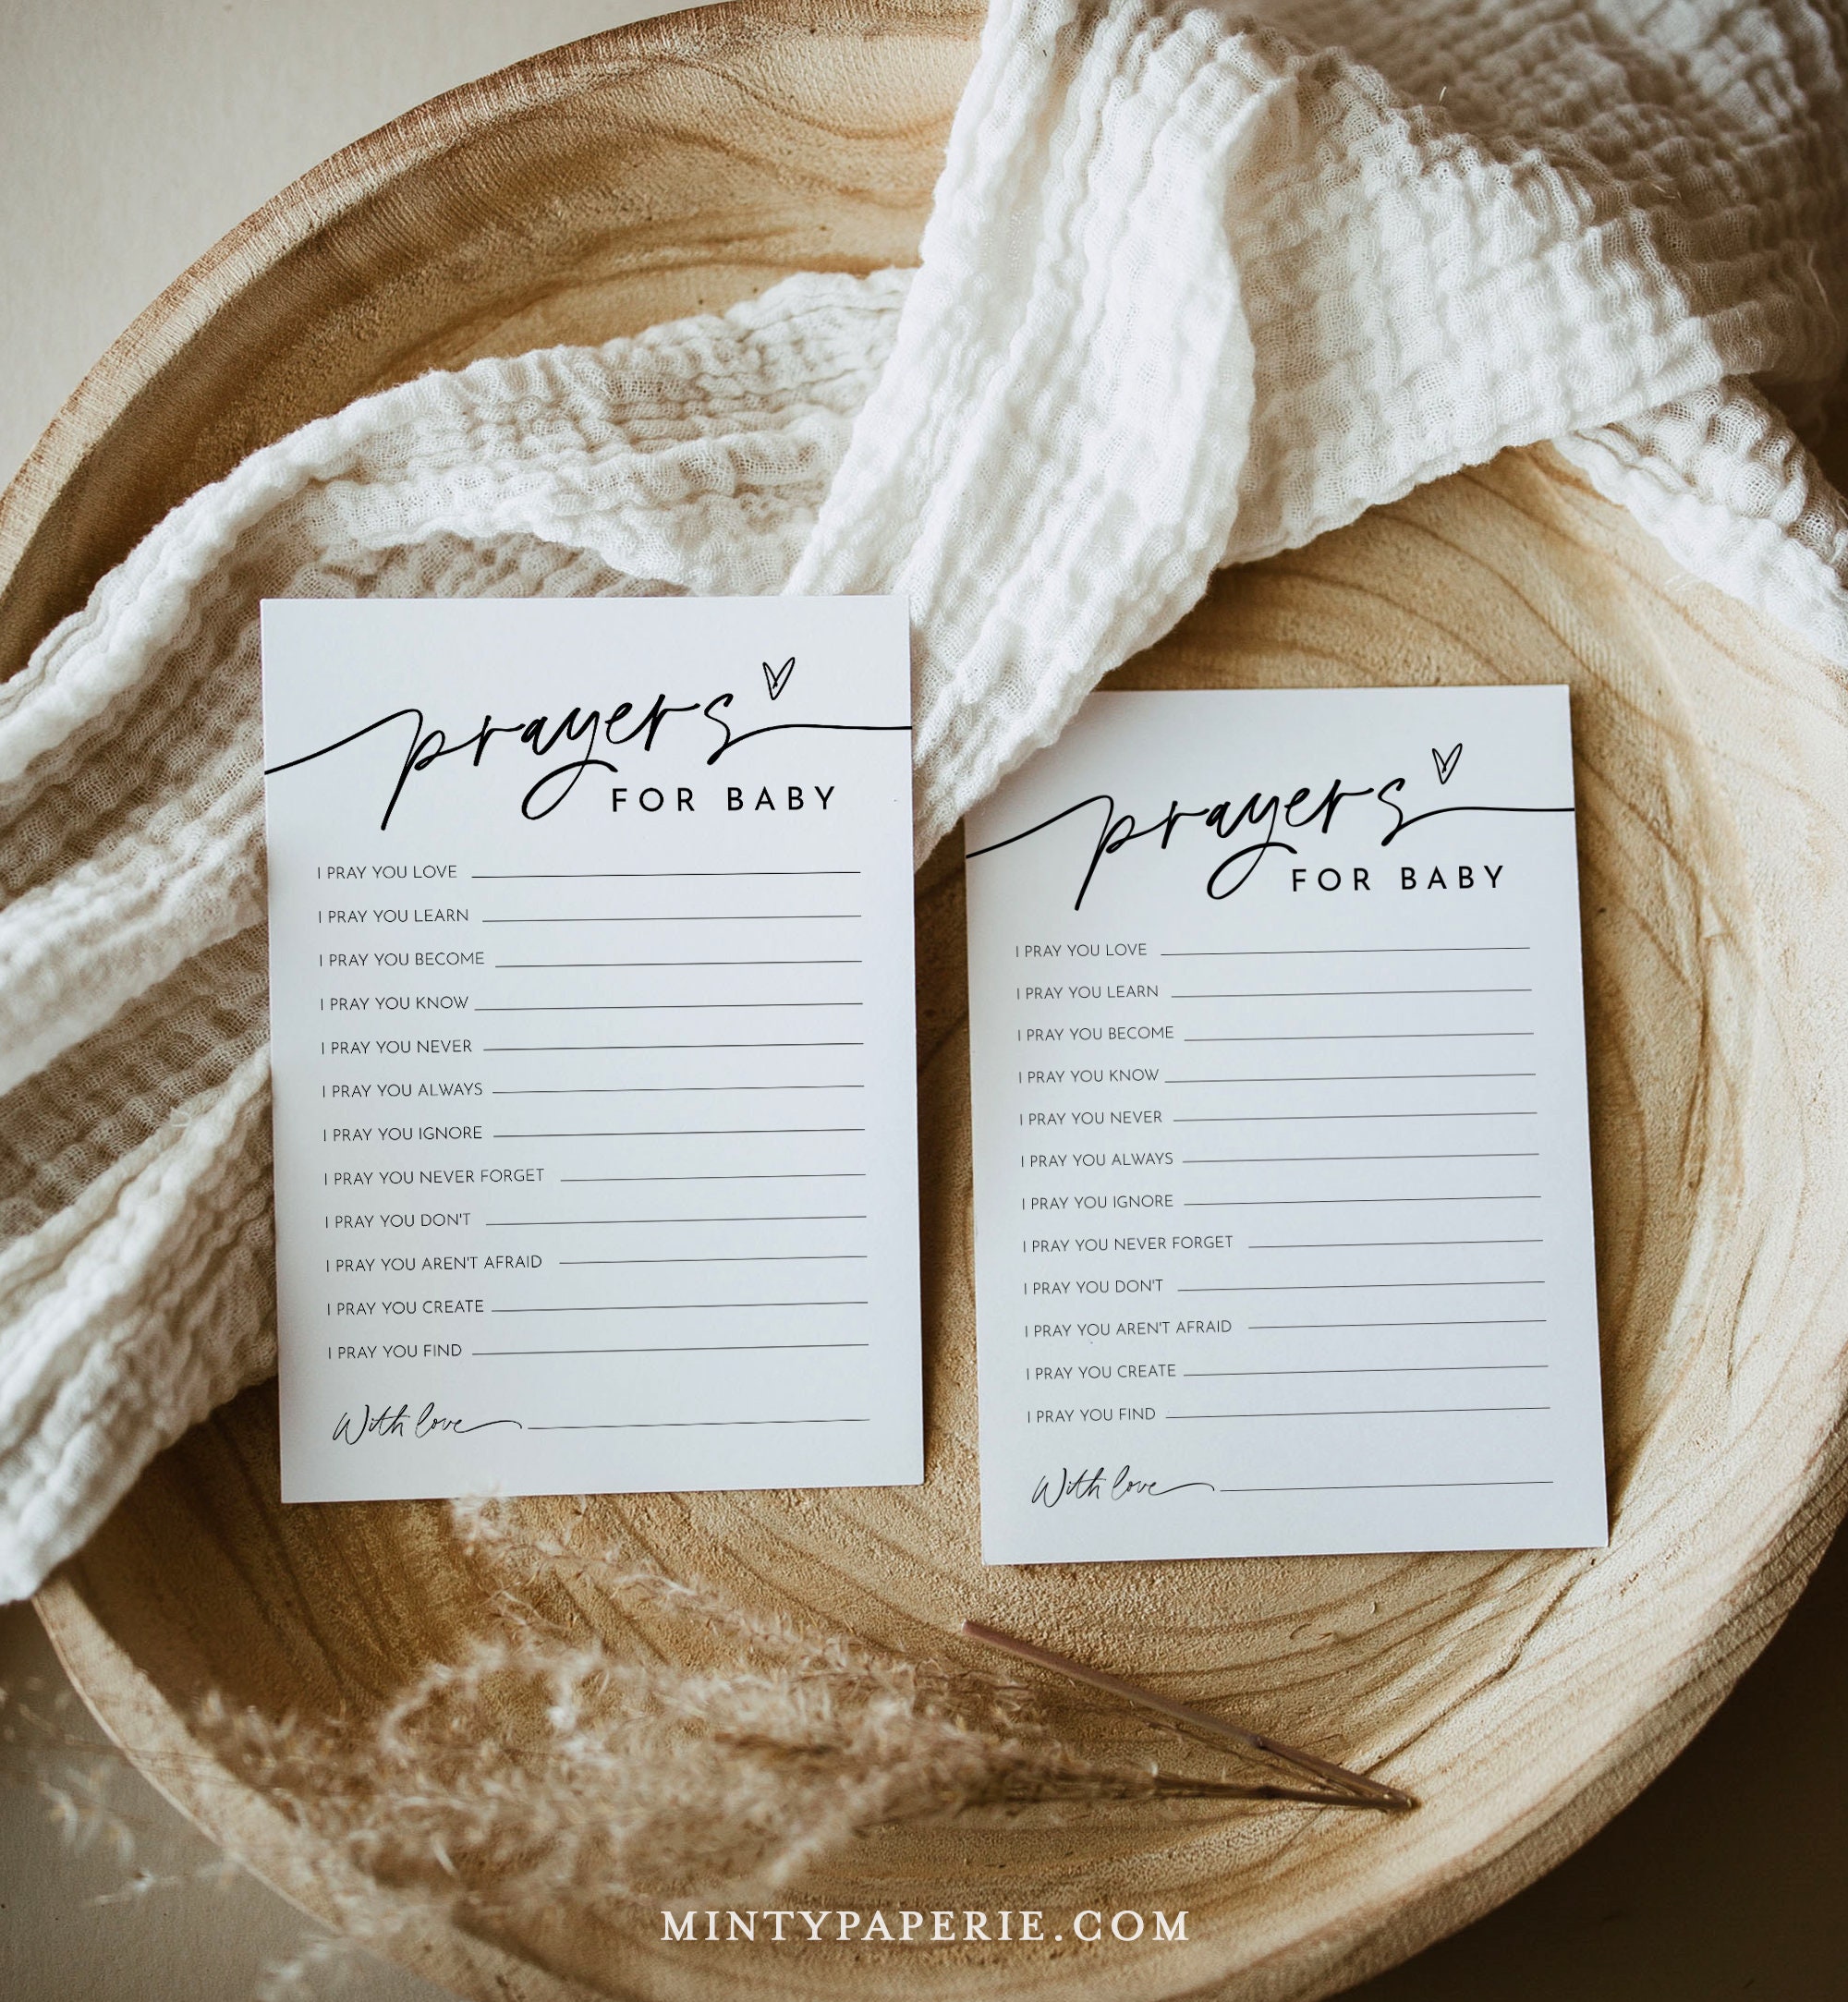 prayers
FOR BABY
I PRAY YOU LOVE
I PRAY YOU LEARN
I PRAY YOU BECOME
I PRAY YOU KNOW
I PRAY YOU NEVER
I PRAY YOU ALWAYS
I PRAY YOU IGNORE
I PRAY YOU NEVER FORGET
I PRAY YOU DON'T
I PRAY YOU AREN'T AFRAID
I PRAY YOU CREATE
I PRAY YOU FIND
With love
prayers
FOR BABY
I PRAY YOU LOVE
I PRAY YOU LEARN
I PRAY YOU BECOME
I PRAY YOU KNOW
I PRAY YOU NEVER
I PRAY YOU ALWAYS
I PRAY YOU IGNORE
I PRAY YOU NEVER FORGET
I PRAY YOU DON'T
I PRAY YOU AREN'T AFRAID
I PRAY YOU CREATE
I PRAY YOU FIND
With love
MINTYPAPERIE.COM